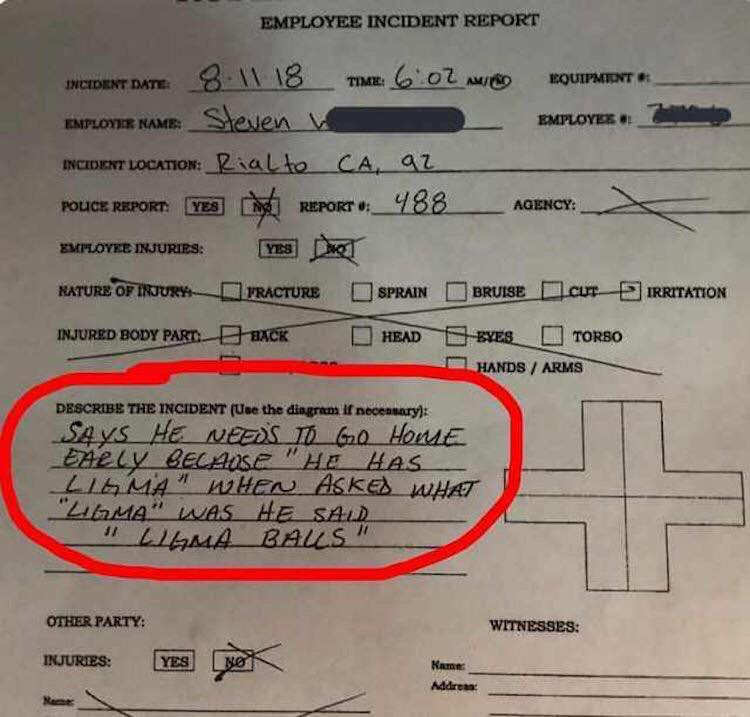 EMPLOYEE INCIDENT REPORT
INCIDENT DATE: 8-11 18 TIME: 6:02 AM/PM EQUIPMENT #:
EMPLOYEE NAME: Steven EMPLOYEE #:
INCIDENT LOCATION: Rialto CA, 92
POLICE REPORT: YES NO REPORT #: 488 AGENCY:
EMPLOYEE INJURIES: YES NO
NATURE OF INJURY: FRACTURE SPRAIN BRUISE CUT IRRITATION
INJURED BODY PART: BACK HEAD EYES TORSO
HANDS / ARMS
DESCRIBE THE INCIDENT (Use the diagram if necessary):
SAYS HE NEEDS TO GO HOME
EARLY BECAUSE "HE HAS
LIGMA" WHEN ASKED WHAT
"LIGMA" WAS HE SAID
"LIGMA BALLS"
OTHER PARTY: WITNESSES:
INJURIES: YES NO
Name:
Address:
Name: